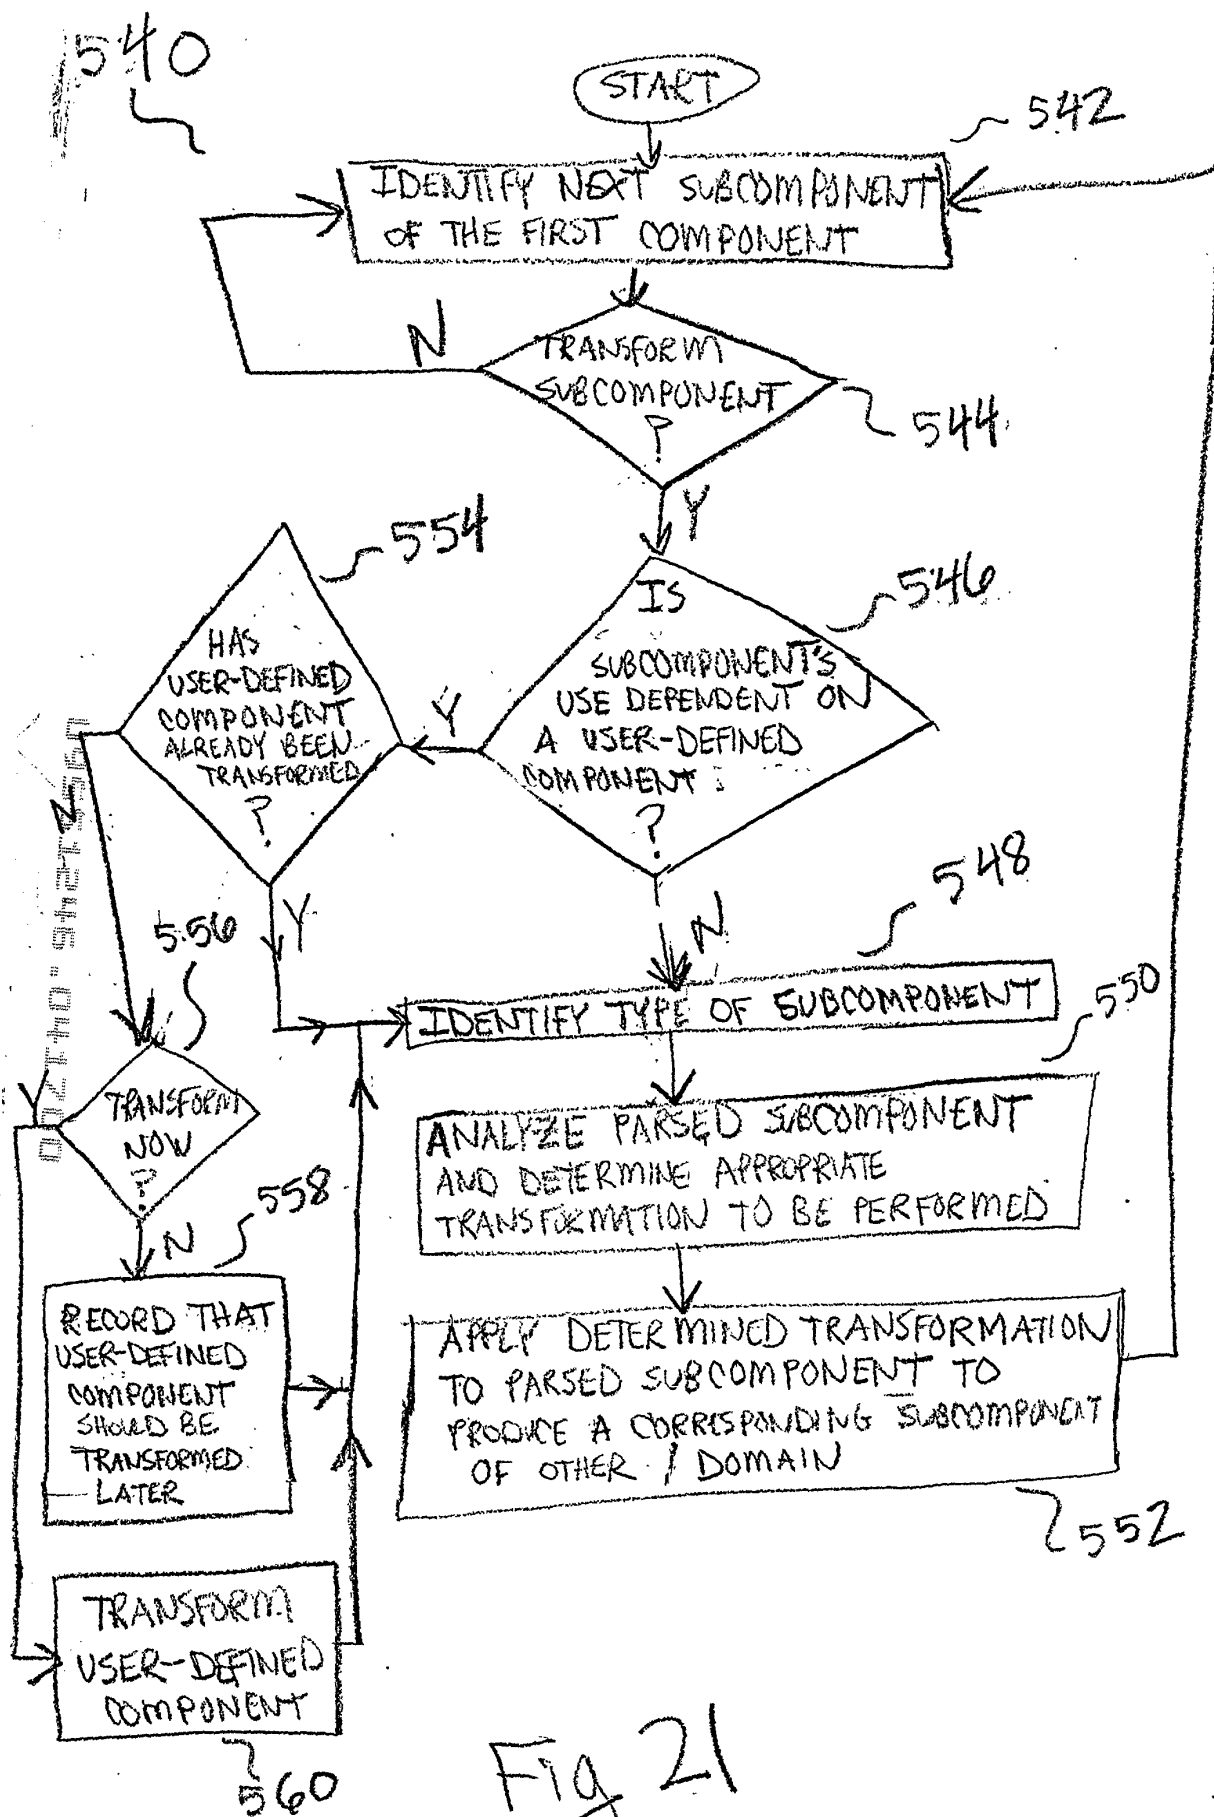 540
START
542
IDENTIFY NEXT SUBCOMPONENT
OF THE FIRST COMPONENT
N
TRANSFORM
SUBCOMPONENT
?
544
Y
554
546
HAS
USER-DEFINED
COMPONENT
ALREADY BEEN
TRANSFORMED
?
Y
IS
SUBCOMPONENT'S
USE DEPENDENT ON
A USER-DEFINED
COMPONENT
?
N
Y
N
548
556
IDENTIFY TYPE OF SUBCOMPONENT
550
Y
TRANSFORM
NOW
?
ANALYZE PARSED SUBCOMPONENT
AND DETERMINE APPROPRIATE
TRANSFORMATION TO BE PERFORMED
N
558
RECORD THAT
USER-DEFINED
COMPONENT
SHOULD BE
TRANSFORMED
LATER
APPLY DETERMINED TRANSFORMATION
TO PARSED SUBCOMPONENT TO
PRODUCE A CORRESPONDING SUBCOMPONENT
OF OTHER / DOMAIN
552
TRANSFORM
USER-DEFINED
COMPONENT
560
Fig 21